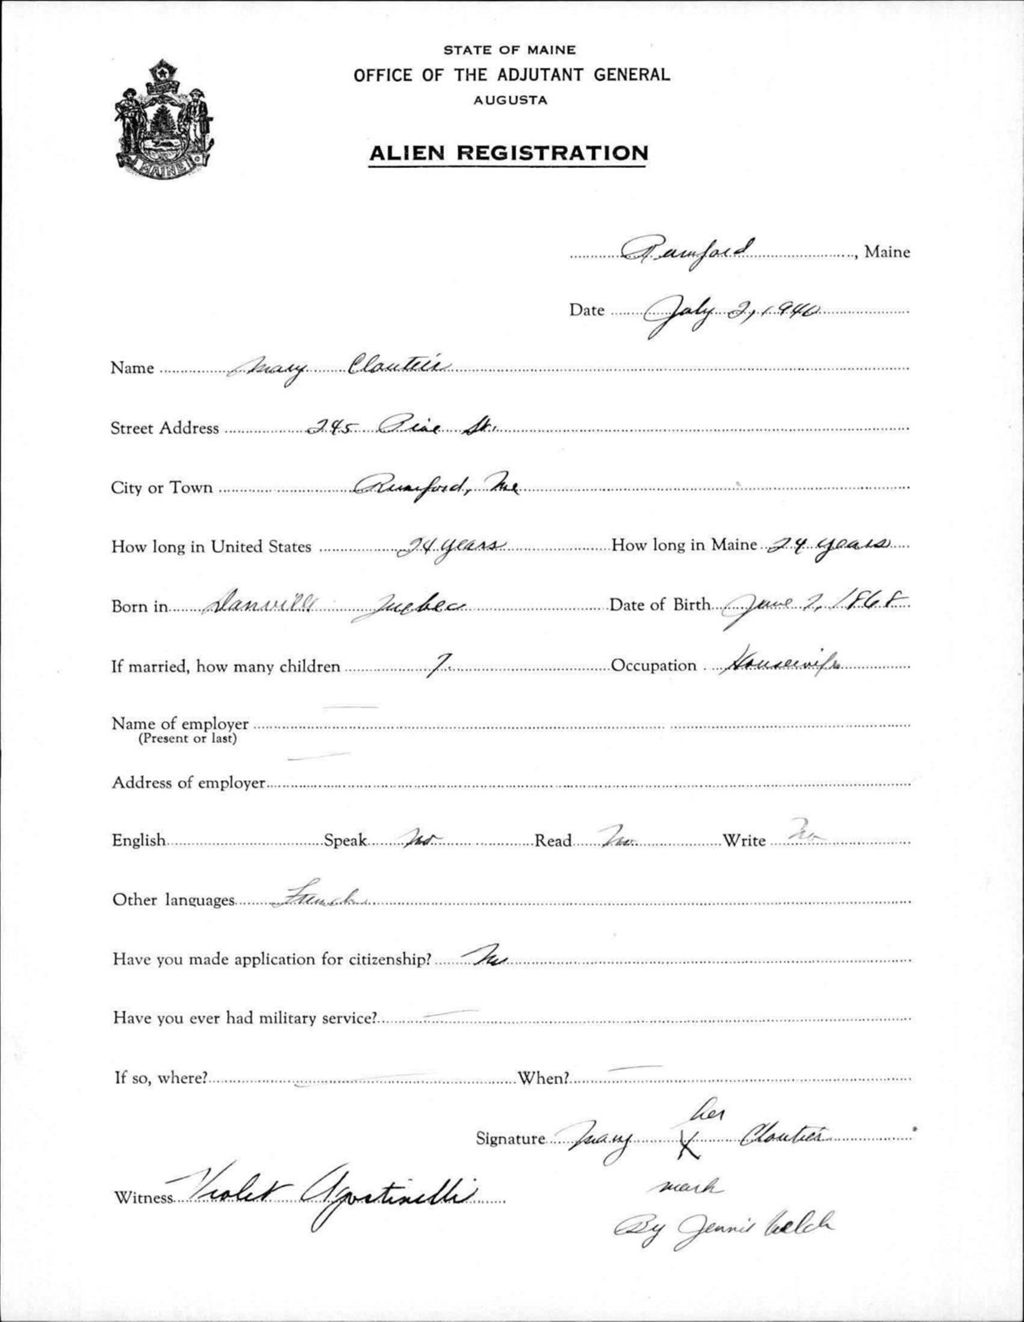 STATE OF MAINE
OFFICE OF THE ADJUTANT GENERAL
AUGUSTA
ALIEN REGISTRATION
MAINE
Rumford, Maine
Date July 2, 1940
Name Mary Cloutier
Street Address 245 Pine St.
City or Town Rumford, Me
How long in United States 24 years How long in Maine 24 years
Born in Danville Quebec Date of Birth June 2, 1868
If married, how many children 7. Occupation Housewife
Name of employer
(Present or last)
Address of employer
English Speak no Read No. Write No
Other languages French
Have you made application for citizenship? No
Have you ever had military service?
If so, where? When?
her
Signature Mary X Cloutier
mark
Witness Violet Agostinelli
By Jennie Welch